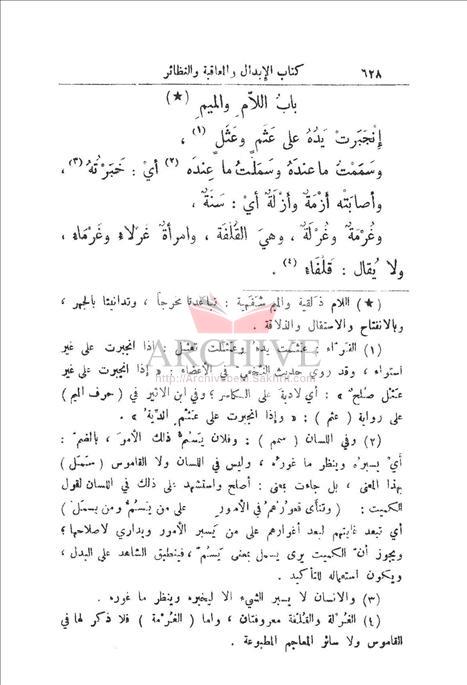 ٦٢٨ كتاب الإبدال والمعاقبة والنظائر
بابُ اللاّمِ والميمِ (★)
إِنْجَبَرتْ يَدُهُ على عَثَمٍ وعَثَلٍ (١) ،
وسَمَمْتُ ما عِندَهُ وسَمَلْتُ ما عِندَه (٢) أيْ : خَبَرْتُهُ (٣) ،
وأصابَتْه أَزْمَةٌ وأَزْلَةٌ أيْ : سَنَةٌ ،
وغُرْمَةٌ وغُرْلَةٌ ، وهيَ القُلْفَة ، وامرأةٌ غَرْلاءُ وغَرْماءُ ،
ولا يُقال : قَلْفَاءُ (٤) .
(★) اللام ذلقية والميم شفهية : تباعدتا مخرجاً ، وتدانيتا بالجهر ،
وبالانفتاح والاستفال والذلاقة .
ARCHIVE
http://Archivebeta.Sakhrit.com
(١) الفرّاء : عثمت يده وعثلت تعثل : إذا انجبرت على غير
استواء ، وقد روي حديث النخعي في الأعضاء : « إذا انجبرت على غير
عثل صلح » : أي لادية على الكاسر ؛ وفي ابن الاثير في ( حرف الميم )
على رواية ( عثم ) : « وإذا انجبرت على عثم الدية » .
(٢) وفي اللسان ( سمم ) : وفلان يَسُمّ ذلك الأمرَ ، بالضم :
أَيْ يسبره وينظر ما غوره ، وليس في اللسان ولا القاموس ( سَمَل )
بهذا المعنى ، بل جاءت بمعنى : أصلح واستشهد على ذلك في اللسان لقول
الكميت : ( وتنأى قعورهم في الأمور على من يَسُمّ ومن يسمل )
أي تبعد غايتهم لبعد أغوارهم على من يسبر الأمور ويداري لاصلاحها ؛
ويجوز أنّ الكميت يرى يسمل بمعنى يَسُمّ ، فينطبق الشاهد على البدل ،
ويكون استعماله للتأكيد .
(٣) والانسان لا يسبر الشيء الا ليخبره وينظر ما غوره .
(٤) الغُرلة والقُلفة معروفتان ، واما ( الغُرمة ) فلا ذكر لها في
القاموس ولا سائر المعاجم المطبوعة .